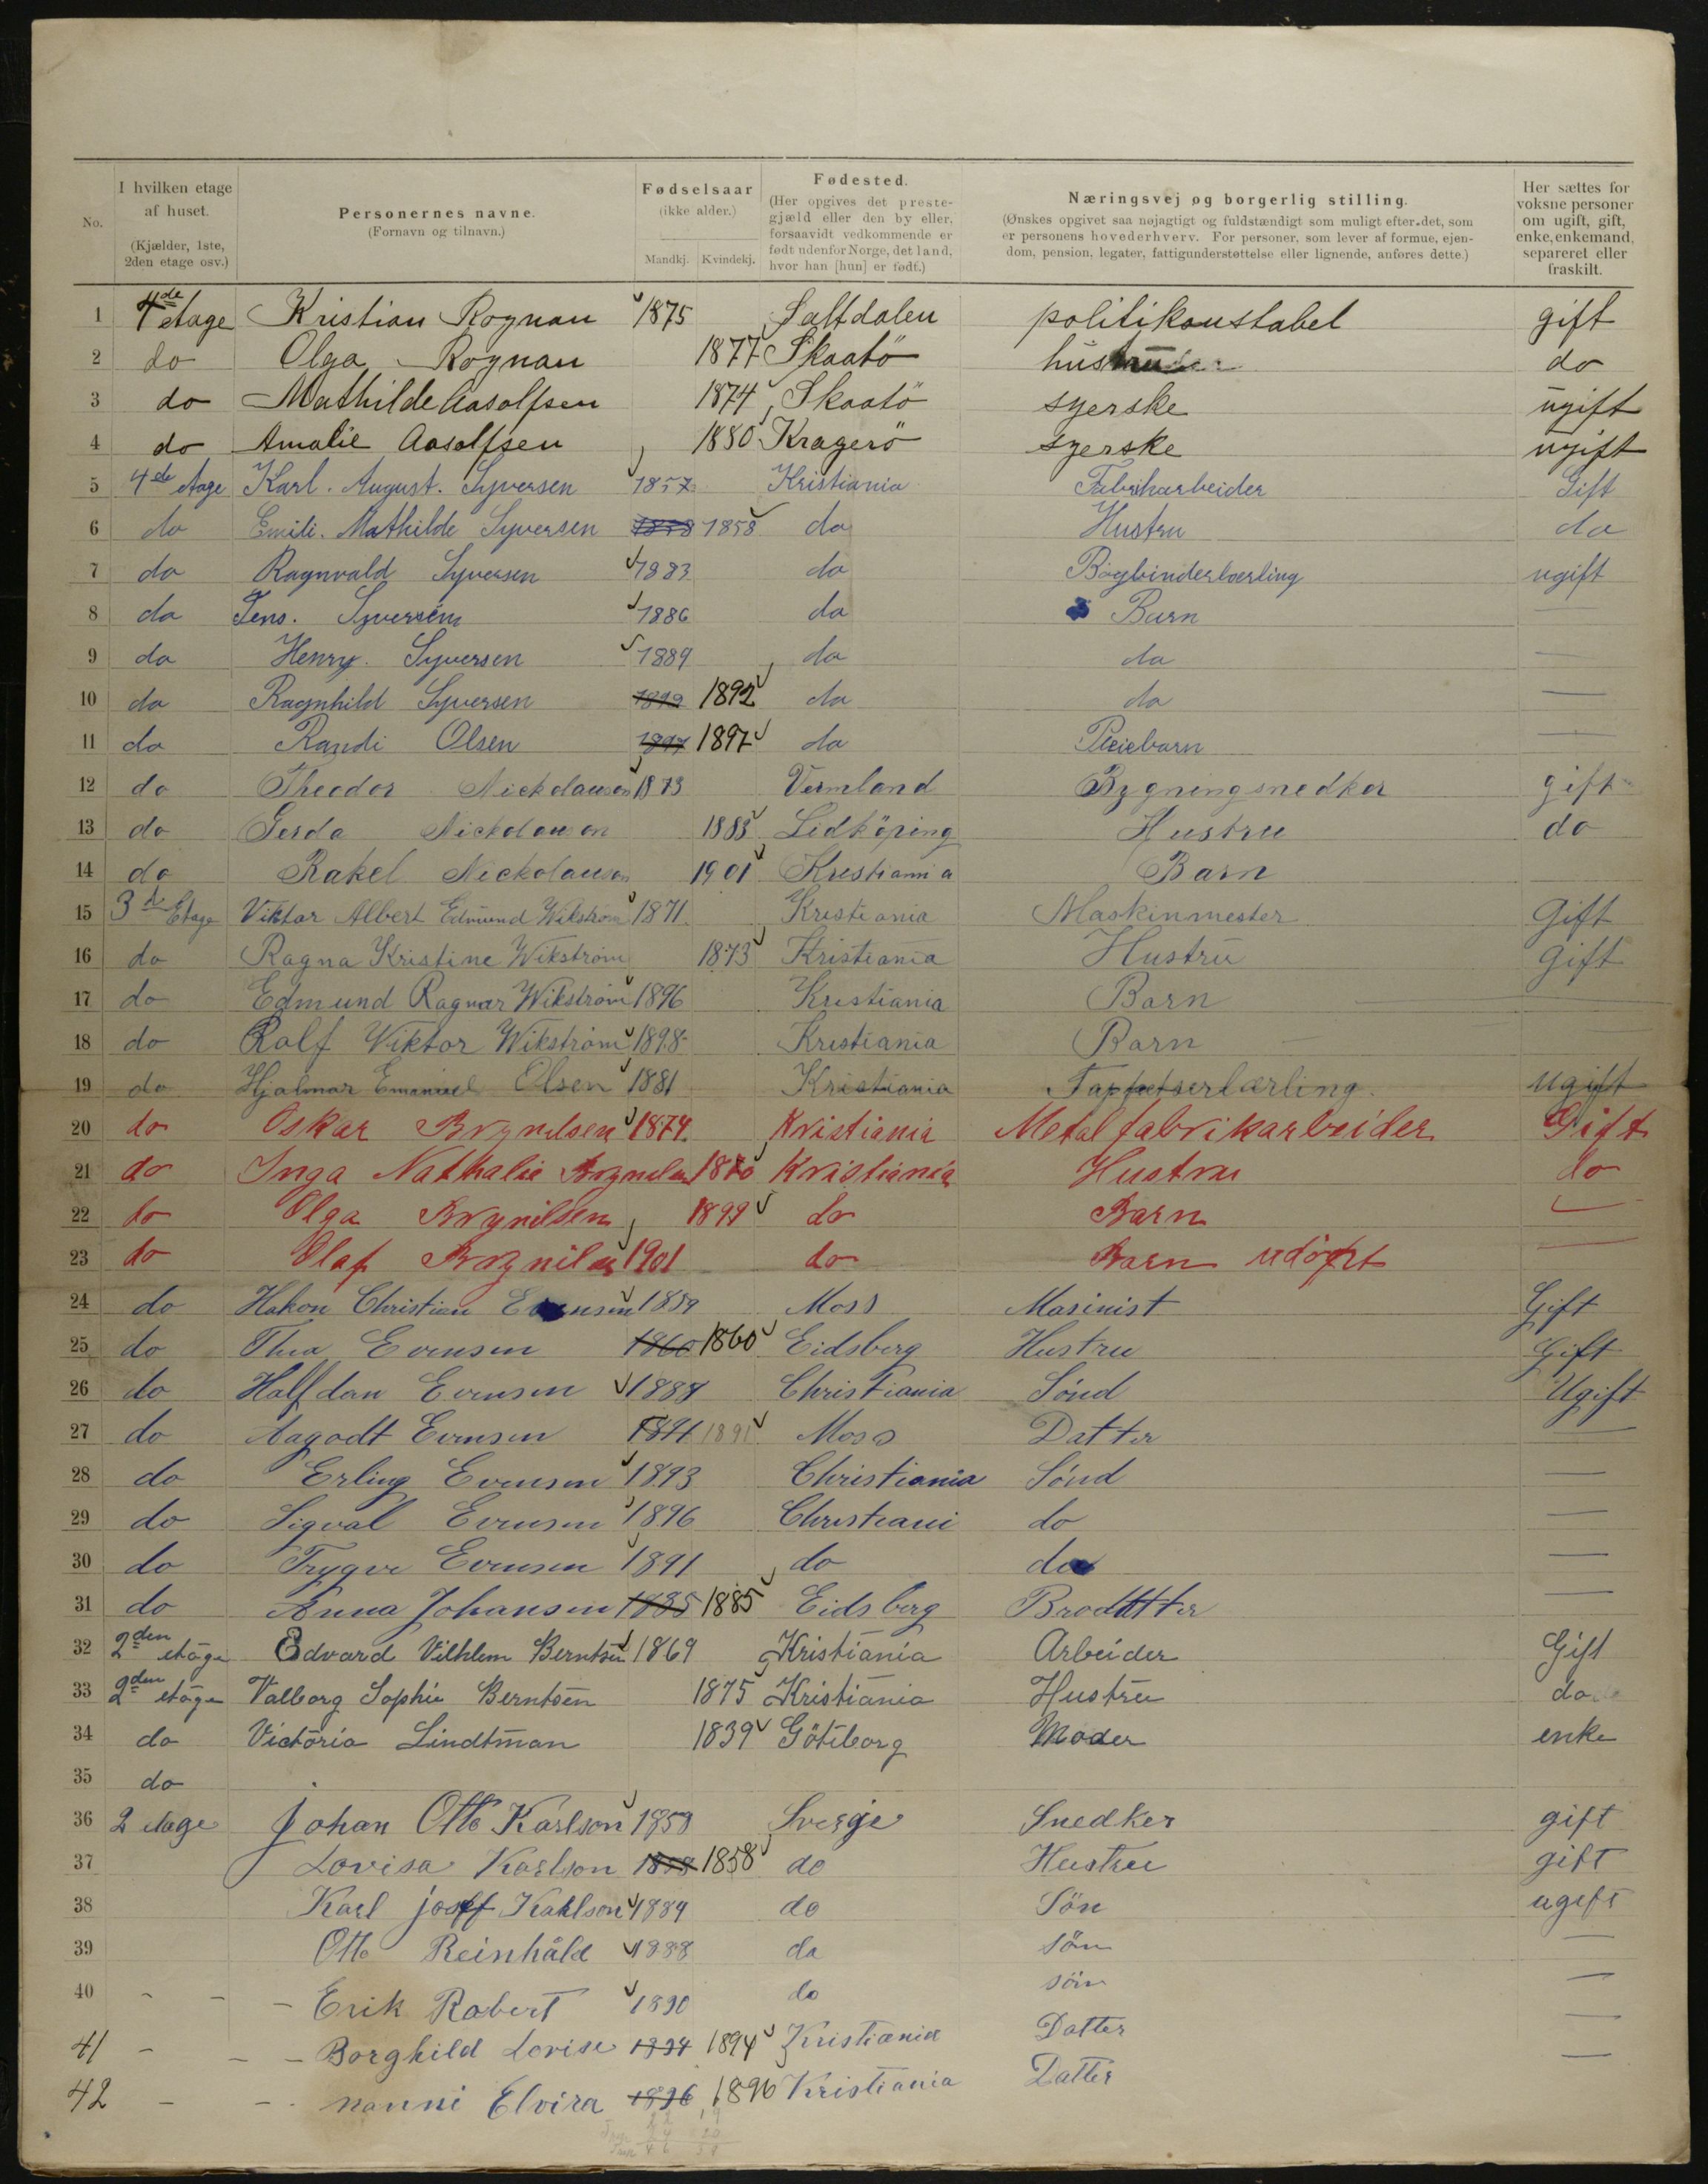 I hvilken etage af huset. (Kjælder, 1ste, 2den etage osv.)
No.
Personernes navne. (Fornavn og tilnavn.)
Fødselsaar (ikke alder.) Mandkj. Kvindekj.
Fødested. (Her opgives det prestegjæld eller den by eller, forsaavidt vedkommende er født udenfor Norge, det land, hvor han [hun] er født.)
Næringsvej og borgerlig stilling. (Ønskes opgivet saa nøjagtigt og fuldstændigt som muligt efter det, som er personens hovederhverv. For personer, som lever af formue, ejendom, pension, legater, fattigunderstøttelse eller lignende, anføres dette.)
Her sættes for voksne personer om ugift, gift, enke, enkemand, separeret eller fraskilt.
1 4de etage Kristian Rognan 1875 Saltdalen politikonstabel gift
2 do Olga Rognan 1877 Skaatö hustru do
3 do Mathilde Aasolfsen 1874 Skaatö syerske ugift
4 do Amalie Aasolfsen 1880 Kragerö syerske ugift
5 4de etage Karl. August. Syversen 1857 Kristiania Fabrikarbeider Gift
6 do Emili. Mathilde Syversen 1858 1858 do Hustru do
7 do Ragnvald Syversen 1883 do Bogbinderlærling ugift
8 do Jens. Syversen 1886 do Barn —
9 do Henry. Syversen 1889 do do —
10 do Ragnhild Syversen 1892 1892 do do —
11 do Randi Olsen 1897 1897 do Pleiebarn —
12 do Theodor Nickolauson 1873 Vermland Bygningsnedker gift
13 do Gerda Nickolauson 1883 Lidköping Hustru do
14 do Rakel Nickolauson 1901 Kristiania Barn
15 3de Etage Viktor Albert Edmund Wikström 1871 Kristiania Maskinmester Gift
16 do Ragna Kristine Wikström 1873 Kristiania Hustru Gift
17 do Edmund Ragnar Wikström 1896 Kristiania Barn
18 do Ralf Viktor Wikström 1898 Kristiania Barn
19 do Hjalmar Emanuel Olsen 1881 Kristiania Tapetserlærling. ugift
20 do Oskar Brynilsen 1874 Kristiania Metalfabrikarbeider Gift
21 do Inga Nathalie Brynilsen Kristiania Hustru do
22 do Olga Brynilsen 1899 do Barn —
23 do Olaf Brynilsen 1901 do Barn udöpt —
24 do Hakon Christian Evensen 1859 Moss Masinist Gift
25 do Thea Evensen 1860 1860 Eidsberg Hustru Gift
26 do Halfdan Evensen 1888 Christiania Sönd Ugift
27 do Aagodt Evensen 1891 1891 Moss Datter —
28 do Erling Evensen 1893 Christiania Sönd —
29 do Sigval Evensen 1896 Christiani do —
30 do Trygve Evensen 1891 do do —
31 do Anna Johansen 1885 1885 Eidsberg Brodatter —
32 2den etage Edvard Vilhlem Berntsen 1869 Kristiania Arbeider Gift
33 2den etage Valborg Sophie Berntsen 1875 Kristiania Hustru do
34 do Victoria Lindtman 1839 Göteborg Moder enke
35 do
36 2 etage Johan Otto Karlson 1859 Sverje Snedker gift
37 Lovisa Karlson 1858 1858 do Hustru gift
38 Karl josef Kahlson 1884 do Sön ugift
39 Otto Reinhåld 1888 do sön —
40 - - - Erik Robert 1890 do sön —
41 - - - Borghild Lovise 1894 1894 Kristiania Datter —
42 - - - nanni Elvira 1896 1896 Kristiania Datter —